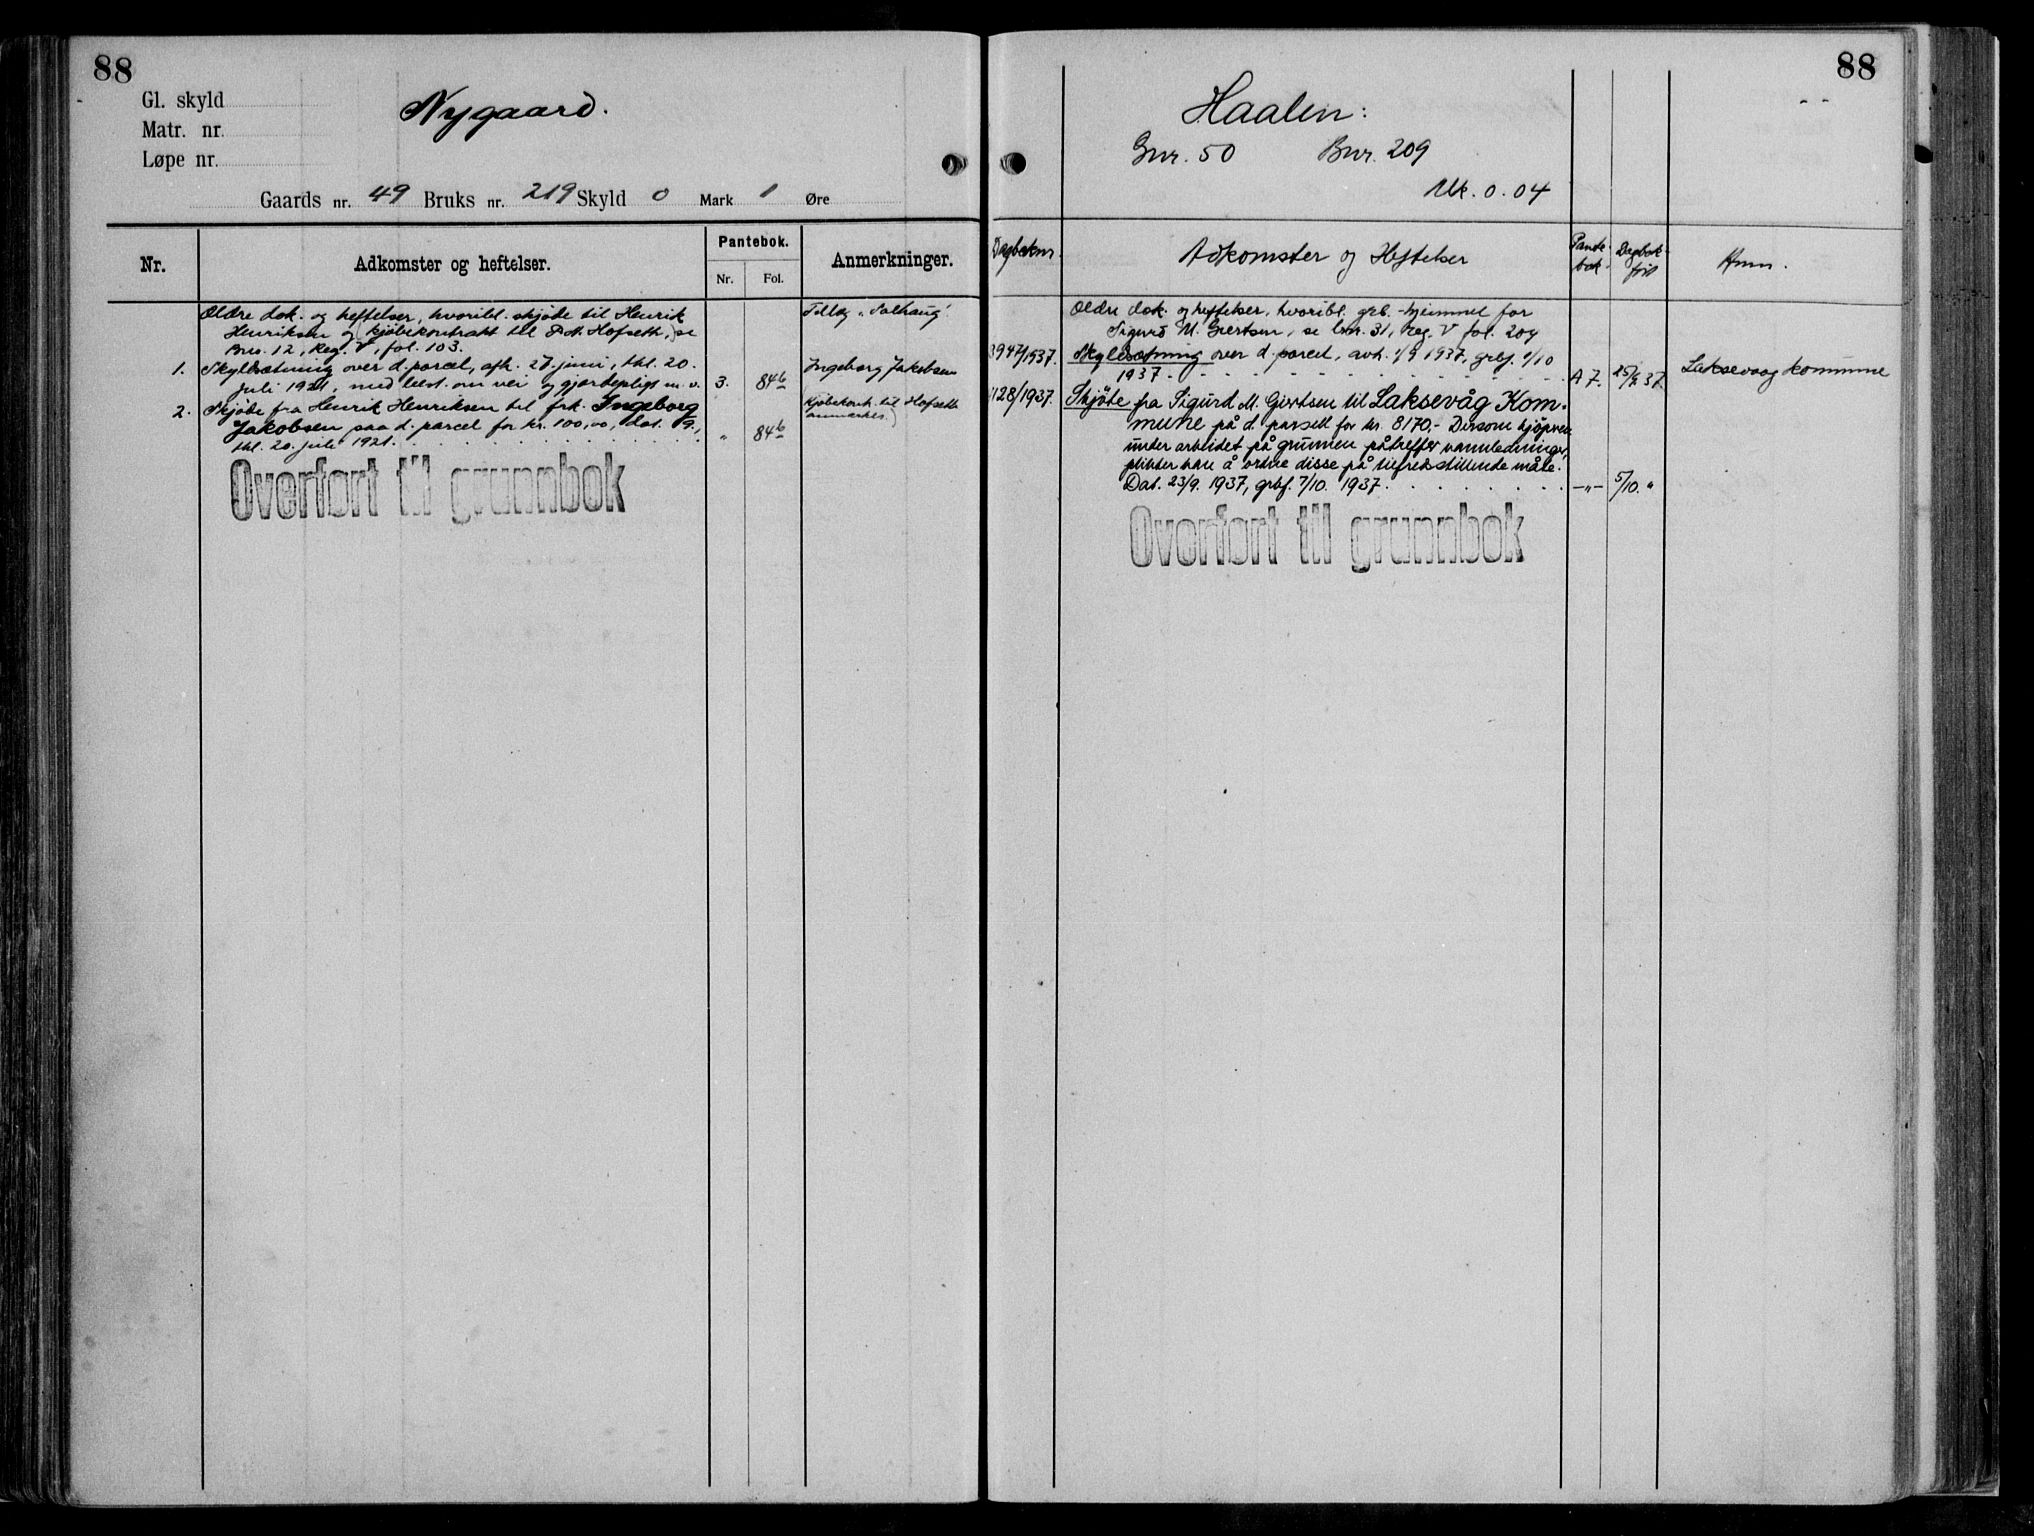 88
Gl. skyld
Matr. nr.
Løpe nr.
Nygaard.
Gaards nr. 49 Bruks nr. 219 Skyld 0 Mark 1 Øre
Nr.
Adkomster og heftelser.
Pantebok.
Nr.
Fol.
Anmerkninger.
Ældre dok. og heftelser, hvoribl. skjøde til Henrik
Henriksen og (kjøbekontrakt til P. A. Hofseth,) se
Brno. 12, Reg. V, fol. 103.
Tillæg "Solhaug"
1. Skyldsætning over d. parcel, afh. 27. juni, thl. 20.
juli 1921, med best. om vei og gjærdepligt m. v. 3. 846
Ingeborg Jakobsen
2. Skjøde fra Henrik Henriksen til frk. Ingeborg
Jakobsen paa d. parcel for kr. 100,00, dat. 9.,
thl. 20. juli 1921. " 846
Kjøbekontr. til Hofseth
anmærkes)
Overført til grunnbok
88
Haalen:
Gnr. 50 Bnr. 209
Mk. 0.04
Dagboknr.
Adkomster og Heftelser
Pante-
bok.
Dagbok-
föit
Anm.
Ældre dok. og heftelser, hvoribl. grb.-hjemmel for
Sigurd M. Giertsen, se bnr. 31, reg. V fol. 204
3947/1937. Skyldsætning over d. parcel, avh. 1/9 1937, grbf. 1/10
1937. A 7. 25/9 37.
Laksevaag kommune
4128/1937. Skjöte fra Sigurd M. Giertsen til Laksevåg Kom-
mune på d. parsell for kr. 8170,- Dersom kjöperen
under arbeidet på grunnen påtreffer vannledninger,
plikter han å ordne disse på tilfredsstillende måte.
Dat. 23/9. 1937, grbf. 7/10. 1937. -"- 5/10. "
Overført til grunnbok